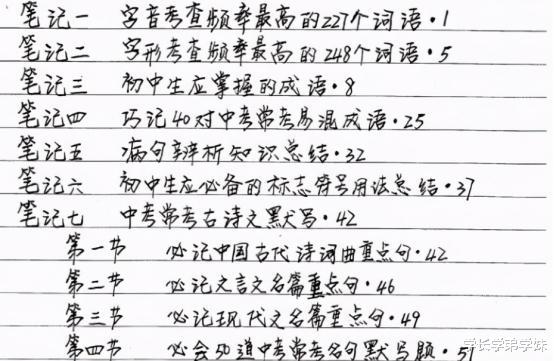 笔记一 字音考查频率最高的227个词语·1
笔记二 字形考查频率最高的248个词语·5
笔记三 初中生应掌握的成语·8
笔记四 巧记40对中考常考易混成语·25
笔记五 病句辨析知识总结·32
笔记六 初中生应必备的标志符号用法总结·37
笔记七 中考常考古诗文默写·42
第一节 必记中国古代诗词曲重点句·42
第二节 必记文言文名篇重点句·46
第三节 必记现代文名篇重点句·49
第四节 必会50道中考常考名句默写题·51
学长学弟学妹